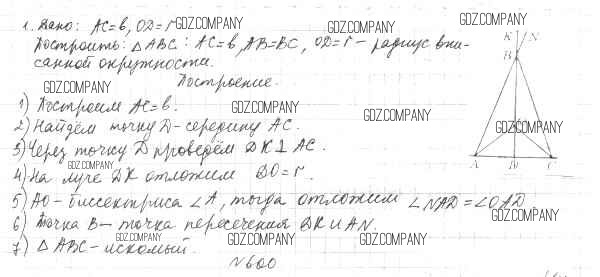 1. Дано: AC=b, OD=r GDZ.COMPANY
GDZ.COMPANY
Построить: △ABC: AC=b, AB=BC, OD=r - радиус впи-
санной окружности.
GDZ.COMPANY
Построение.
GDZ.COMPANY
1) Построим AC=b. GDZ.COMPANY
GDZ.COMPANY
2) Найдём точку D-середину AC.
3) Через точку D проведём DK⊥AC.
GDZ.COMPANY
GDZ.COMPANY
4) На луче DK отложим DO=r.
GDZ.COMPANY
5) AO-биссектриса ∠A, тогда отложим ∠NAD=∠OAD
GDZ.COMPANY
6) Точка B-точка пересечения DK и AN.
7) △ABC-искомый. GDZ.COMPANY GDZ.COMPANY GDZ.COMPANY
№600
K N
B
GDZ.COMPANY
A D C